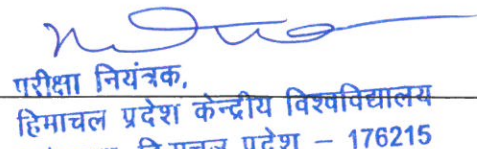 परीक्षा नियंत्रक,
हिमाचल प्रदेश केन्द्रीय विश्वविद्यालय
हिमाचल प्रदेश – 176215